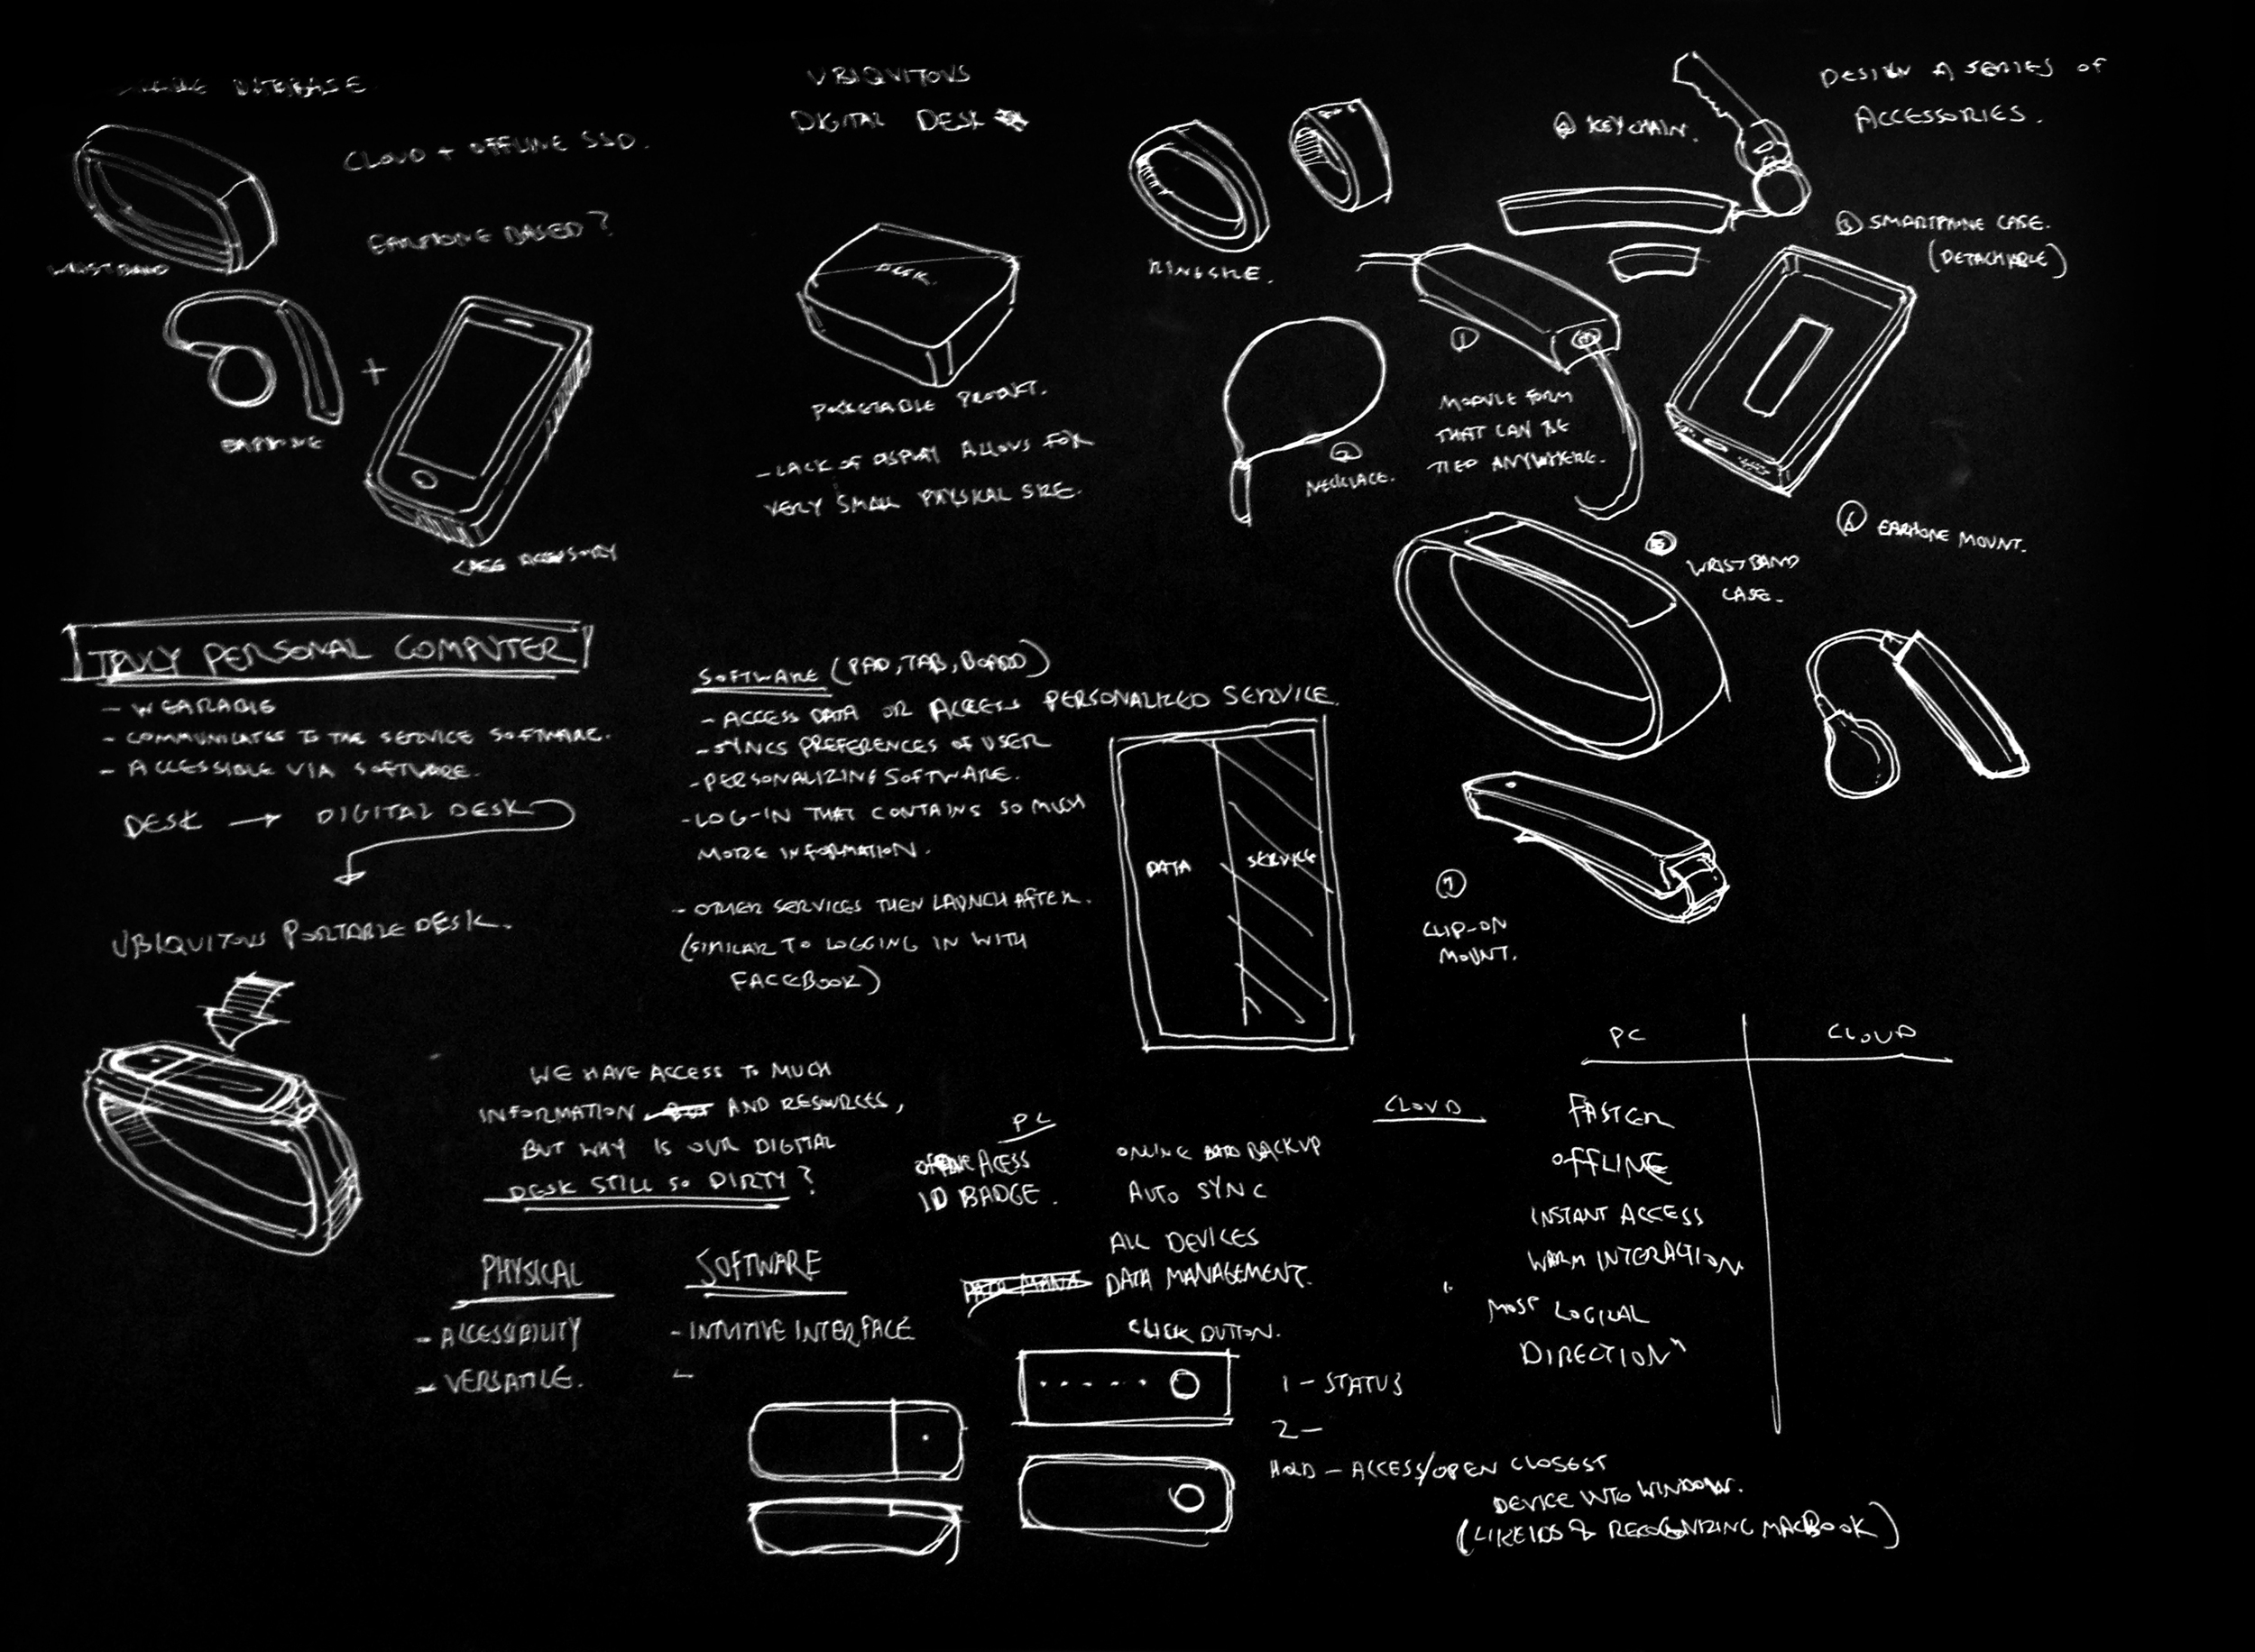 DATABASE
CLOUD + OFFLINE SSD.
EARPHONE BASED?
WRISTBAND
+
EARPHONE
CASE ACCESSORY
UBIQUITOUS
DIGITAL DESK
DESK.
POCKETABLE PRODUCT.
- LACK OF DISPLAY ALLOWS FOR
VERY SMALL PHYSICAL SIZE.
DESIGN A SERIES OF
ACCESSORIES.
KEYCHAIN.
RINGSIZE.
③ SMARTPHONE CASE.
(DETACHABLE)
①
MODULE FORM
THAT CAN BE
TIED ANYWHERE.
②
NECKLACE.
WRISTBAND
CASE.
⑥ EARPHONE MOUNT.
⑦
CLIP-ON
MOUNT.
TRULY PERSONAL COMPUTER
- WEARABLE
- COMMUNICATES TO THE SERVICE SOFTWARE.
- ACCESSIBLE VIA SOFTWARE.
DESK → DIGITAL DESK
UBIQUITOUS PORTABLE DESK.
SOFTWARE (PAD, TAB, BOARD)
- ACCESS DATA OR ACCESS PERSONALIZED SERVICE.
- SYNCS PREFERENCES OF USER
- PERSONALIZING SOFTWARE.
- LOG-IN THAT CONTAINS SO MUCH
MORE INFORMATION.
- OTHER SERVICES THEN LAUNCH AFTER.
(SIMILAR TO LOGGING IN WITH
FACEBOOK)
DATA
SERVICE
WE HAVE ACCESS TO MUCH
INFORMATION AND RESOURCES,
BUT WHY IS OUR DIGITAL
DESK STILL SO DIRTY?
PHYSICAL
- ACCESSIBILITY
- VERSATILE.
SOFTWARE
- INTUITIVE INTERFACE
-
PC
OFFLINE ACESS
ID BADGE.
CLOUD
ONLINE BACKUP
AUTO SYNC
ALL DEVICES
DATA MANAGEMENT.
CLICK BUTTON.
1 - STATUS
2 -
HOLD - ACCESS/OPEN CLOSEST
DEVICE INTO WINDOW.
(LIKE IOS 8 RECOGNIZING MACBOOK)
PC
CLOUD
FASTER
OFFLINE
INSTANT ACCESS
WARM INTERACTION
"MOST LOGICAL
DIRECTION"